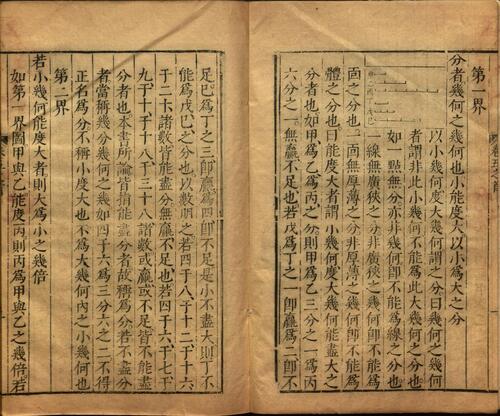 第一界
分者幾何之幾何也小能度大以小爲大之分
以小幾何度大幾何謂之分曰幾何之幾何
者謂非此小幾何不能爲此大幾何之分也
如一點無分亦非幾何卽不能爲線之分也
一線無廣狹之分非廣狹之幾何卽不能爲
面之分也一面無厚薄之分非厚薄之幾何卽不能爲
體之分也曰能度大者謂小幾何度大幾何能盡大之
分者也如甲爲乙爲丙之分則甲爲乙三分之一爲丙
六分之一無贏不足也若戊爲丁之一卽贏爲二卽不
足己爲丁之三卽贏爲四卽不足是小不盡大則丁不
能爲戊己之分也以數明之若四于八于十二于十六
于二十諸數皆能盡分無贏不足也若四于六于七于
九于十于十八于三十八諸數或贏或不足皆不能盡
分者也本書所論皆指能盡分者故稱爲分若不盡分
者當稱幾分幾何之幾如四于六爲三分六之二不得
正名爲分不稱小度大也不爲大幾何內之小幾何也
第二界
若小幾何能度大者則大爲小之幾倍
如第一界圖甲與乙能度丙則丙爲甲與乙之幾倍若